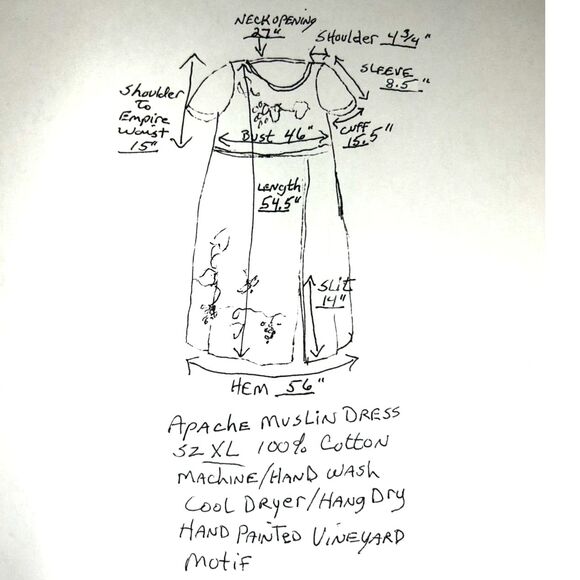 NECK OPENING
27"
Shoulder 4 3/4"
SLEEVE
8.5"
Shoulder
To
Empire
Waist
15"
CUFF
15.5"
Bust 46"
LENGTH
54.5"
SLIT
14"
HEM 56"
APACHE MUSLIN DRESS
SZ XL 100% COTTON
MACHINE/HAND WASH
COOL DRYER/HANG DRY
HAND PAINTED VINEYARD
MOTIF